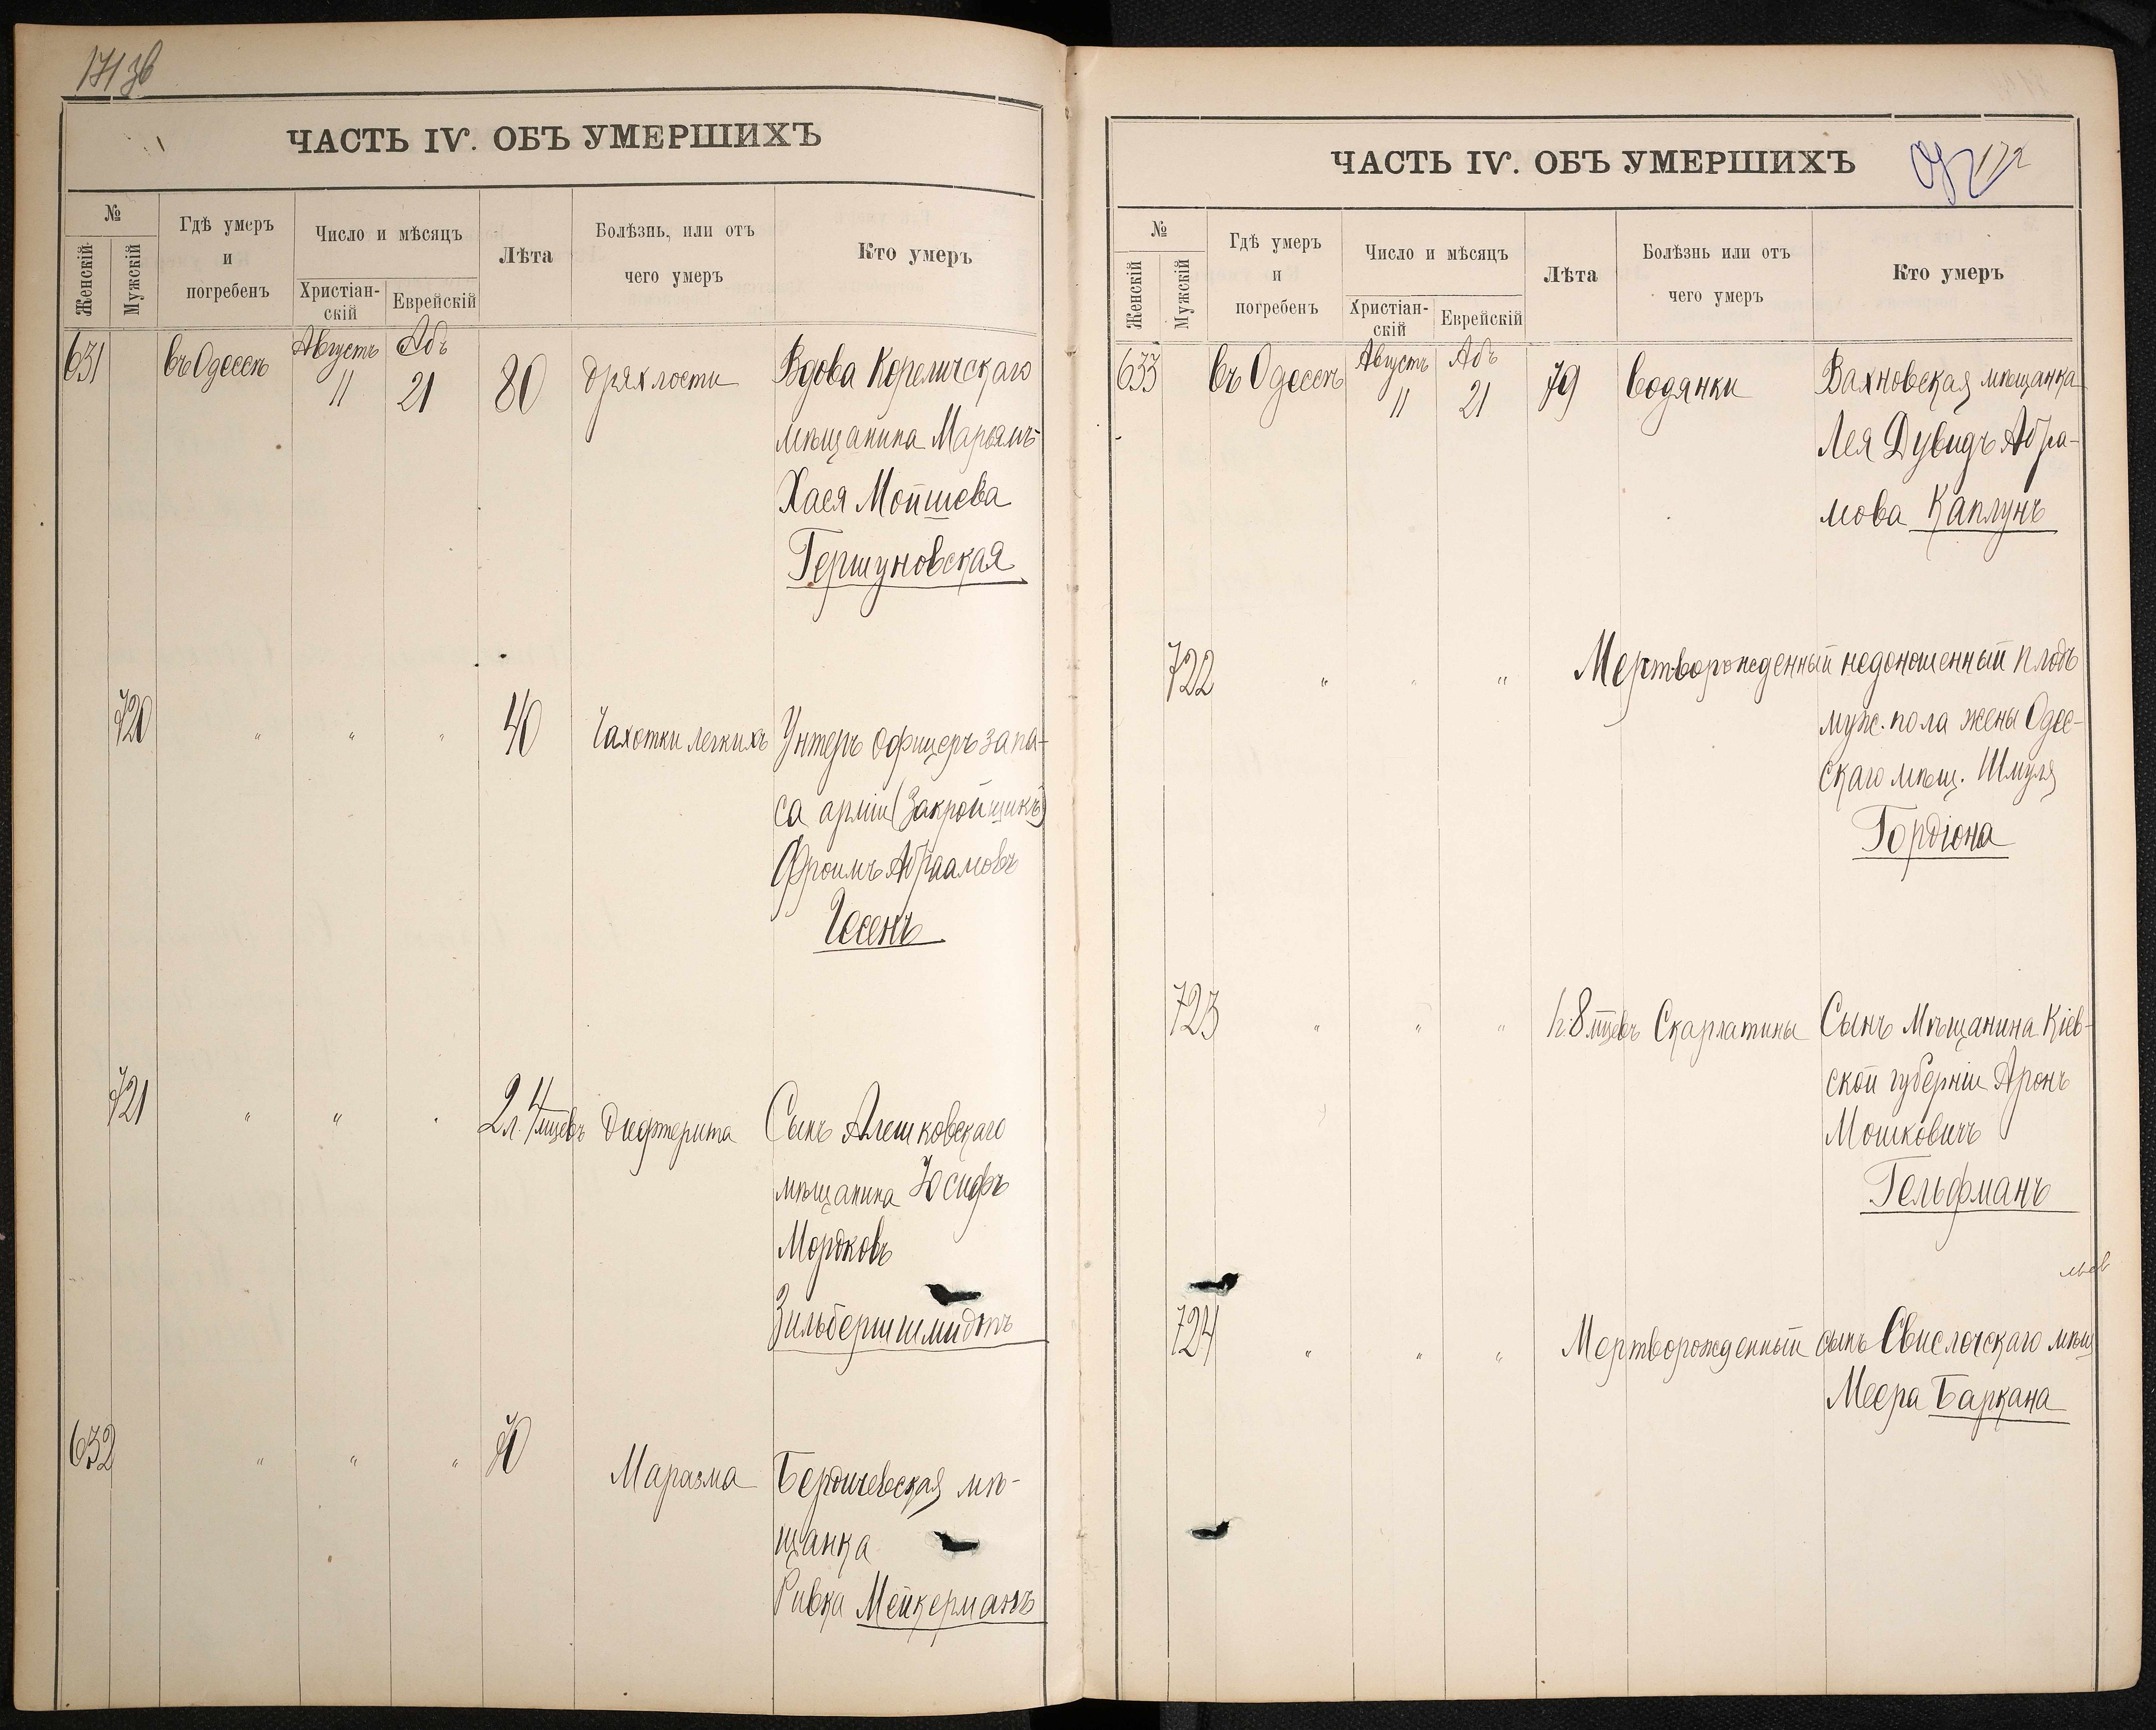 171 зв
ЧАСТЬ IV. ОБЪ УМЕРШИХЪ
№
Женскій
Мужскій
Гдѣ умеръ
и
погребенъ
Число и мѣсяцъ
Христіан-
скій
Еврейскій
Лѣта
Болѣзнь, или отъ
чего умеръ
Кто умеръ
631 въ Одессѣ Августъ 11 Абъ 21 80 дряхлости Вдова Кореличскаго
мѣщанина Марьямъ-
Хася Мойшева
Гершуновская
720 " " " 40 Чахотки легкихъ Унтеръ офицеръ запа-
са арміи (Закройщикъ)
Фроимъ Абрамовъ
Гесенъ
721 " " " 2 л. 4 мцевъ Дифтерита Сынъ Алешковскаго
мѣщанина Іосифъ
Мордковъ
Зильбершмидтъ
632 " " " 70 Маразма Бердичевская мѣ-
щанка
Ривка Мейкерманъ
ЧАСТЬ IV. ОБЪ УМЕРШИХЪ
172
№
Женскій
Мужскій
Гдѣ умеръ
и
погребенъ
Число и мѣсяцъ
Христіан-
скій
Еврейскій
Лѣта
Болѣзнь или отъ
чего умеръ
Кто умеръ
633 въ Одессѣ Августъ 11 Абъ 21 79 водянки Вахновская мѣщанка
Лея Дувидъ Абра-
мова Каплунъ
722 " " " Мертворожденный недоношенный плодъ
муж. пола жены Одес-
скаго мѣщ. Шмуля
Гордіона
723 " " " 1 г. 8 мцевъ Скарлатины Сынъ Мѣщанина Кіев-
ской губерніи Аронъ
Мошковичъ
Гельфманъ
724 " " " Мертворожденный сынъ Свислочскаго мѣщ
Меера Баркана